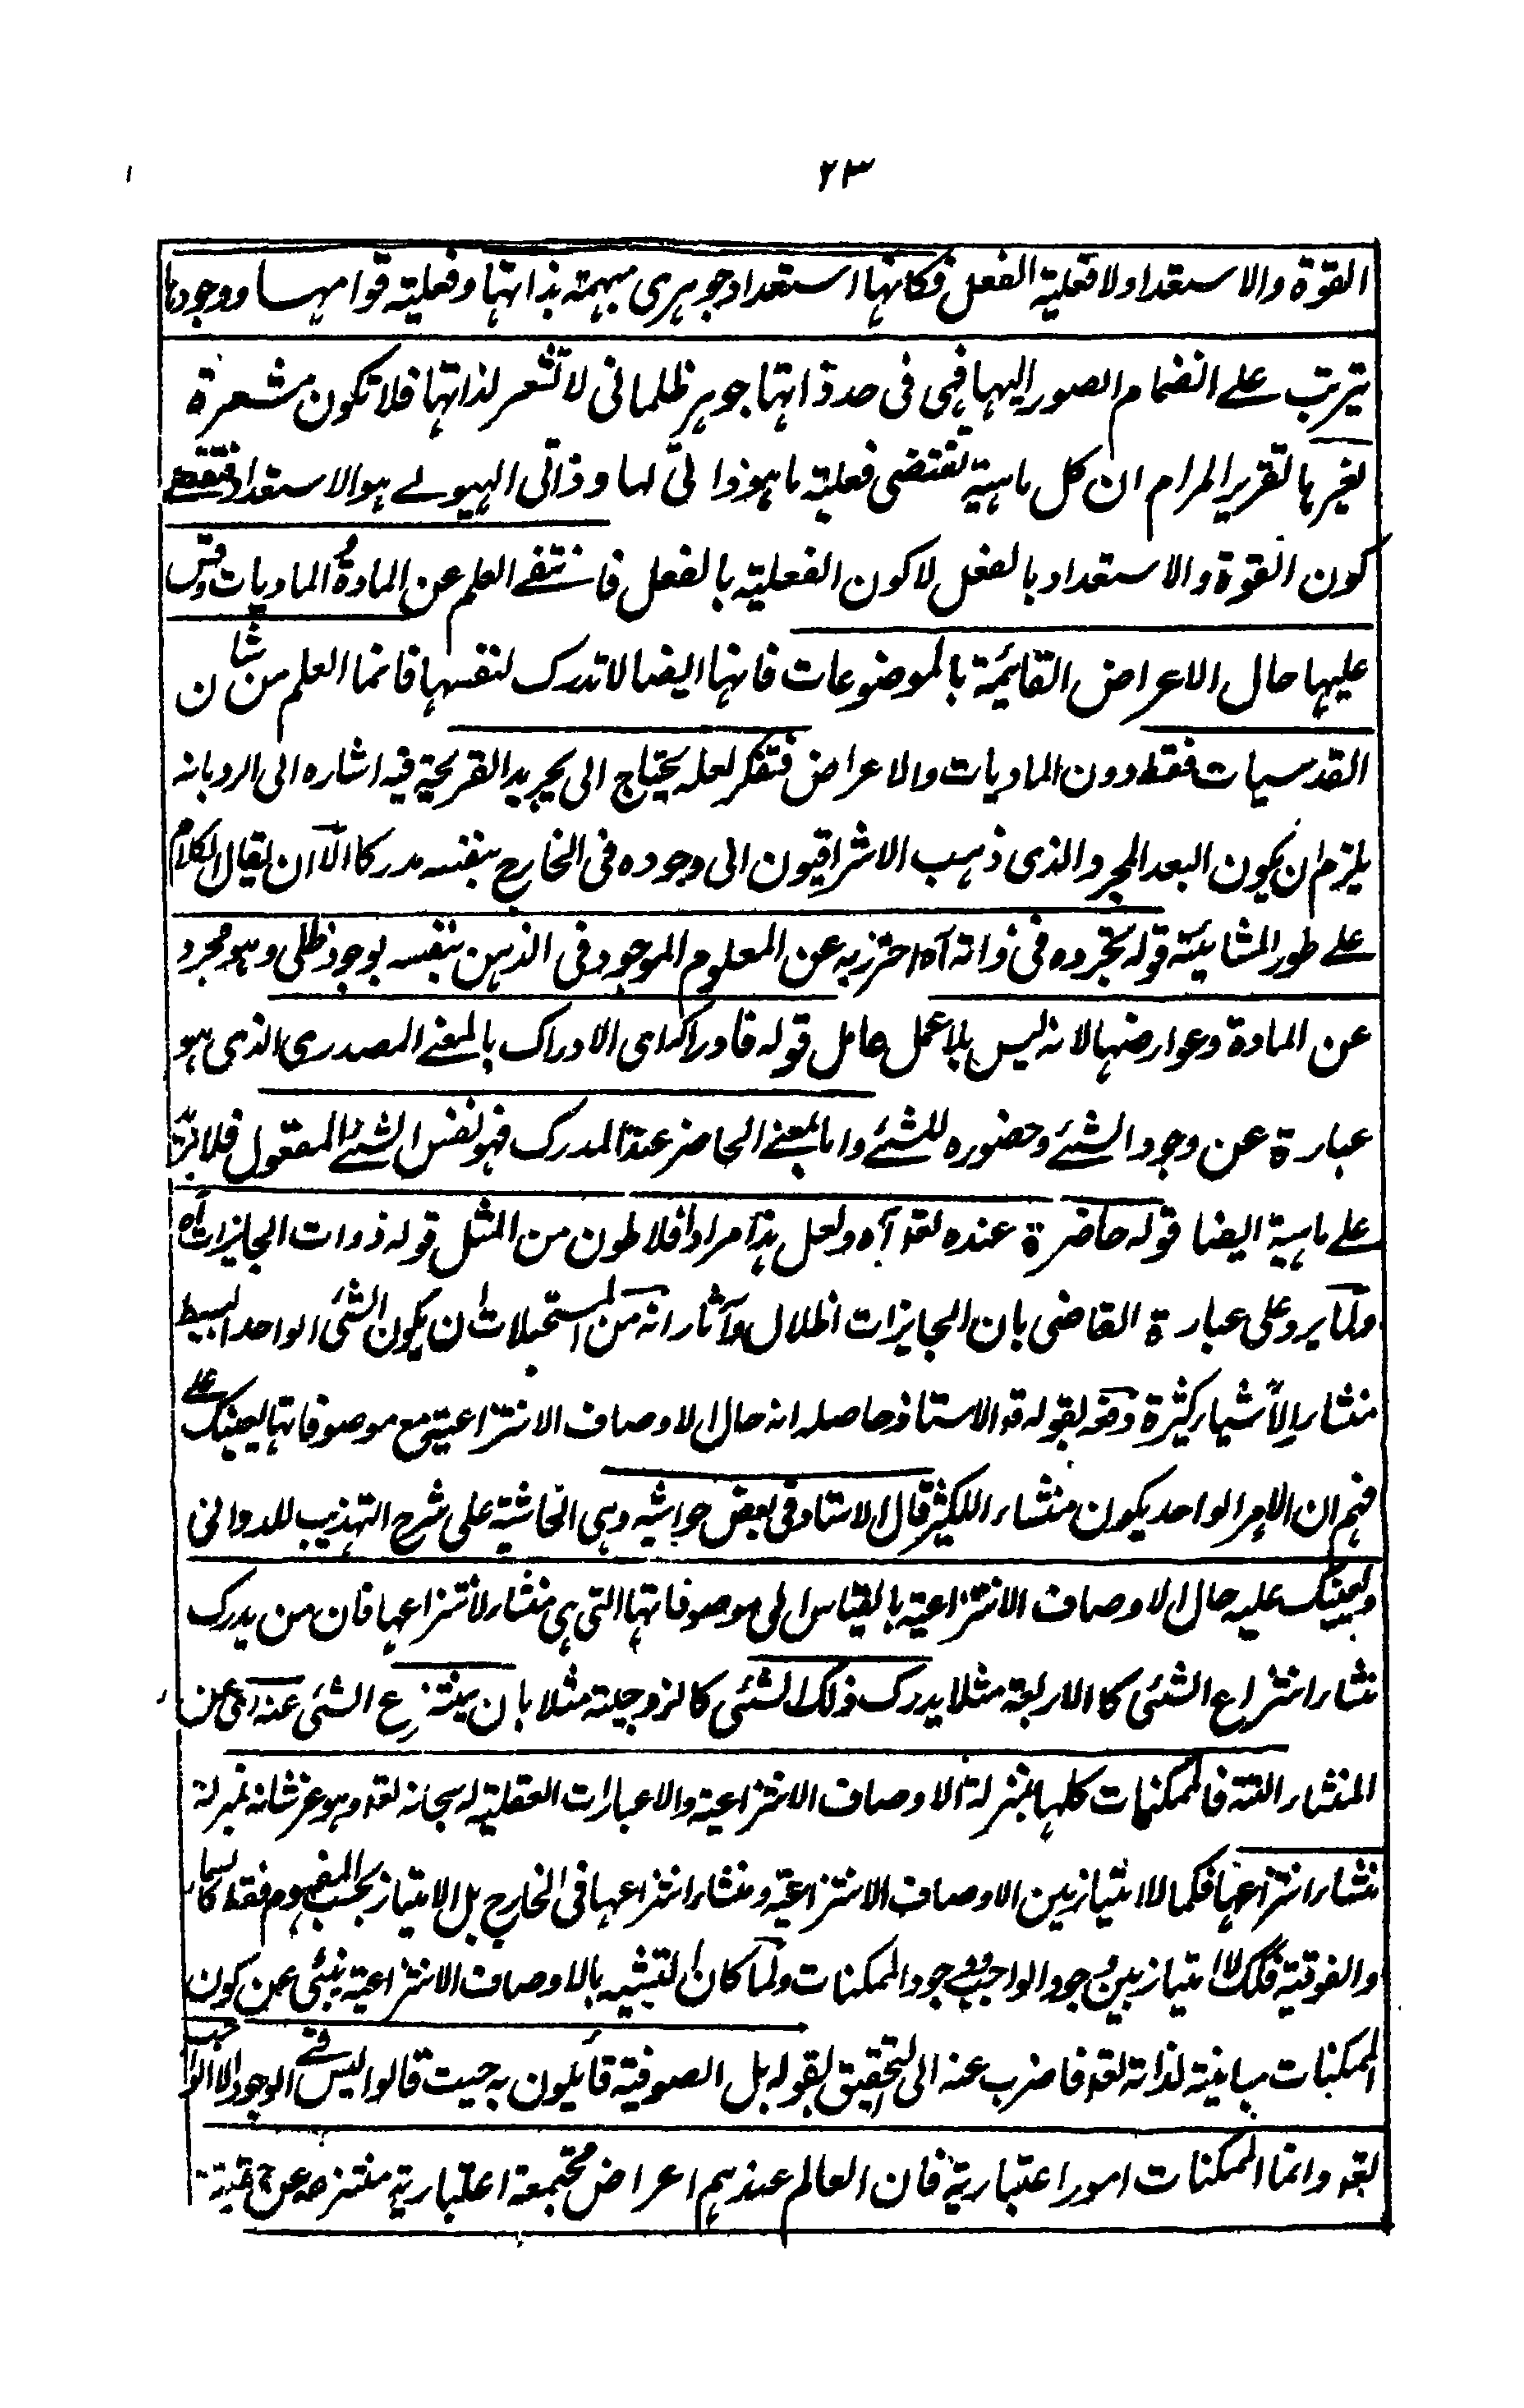 ٢٣
القوة والاستعداد ولا فعلية الفعل فكانها استعداد جوهرى مبهمة بذاتها وفعلية قوامها ووجودها
يترتب على انضمام الصور اليها فهى فى حد ذاتها جوهر ظلمانى لا تشعر لذاتها فلا تكون مشعرة
لغيرها تقرير المرام ان كل ماهية تقتضى فعلية ما هو ذاتى لها وذاتى الهيولے هو الاستعداد فتقتضے
كون القوة والاستعداد بالفعل لا كون الفعلية بالفعل فانتفے العلم عن المادة الماديات وقس
عليها حال الاعراض القائمة بالموضوعات فانها ايضا لا تدرك لنفسها فانما العلم من شان
القدسيات فقط دون الماديات والاعراض فتفكر لعله يحتاج الى تجريد القريحة فيه اشاره الى الرد بانه
يلزم ان يكون البعد المجرد الذى ذهب الاشراقيون الى وجوده فى الخارج بنفسه مدركا الا ان يقال الكلام
على طور المشائية قوله بتجرده فى ذاته آه احترز به عن المعلوم الموجود فى الذهن بنفسه بوجود ظلى وهو مجرد
عن المادة وعوارضها لانه ليس بلا عمل عامل قوله فادراكه اى الادراك بالمعنے المصدرى الذى هو
عبارة عن وجود الشئے وحضوره للشئے واما بالمعنے الحاضر عند المدرك فهو نفس الشئے المعقول فلا يترتب
على ماهية ايضا قوله حاضرة عنده لقد آه ولعل هذا مراد افلاطون من المثل قوله ذوات الجايزات آه
ولما يرد على عبارة القاضى بان الجايزات اظلال وآثار انه من المستحيلات ان يكون الشئ الواحد البسيط
منشاء لاشياء كثيرة دفعه بقوله قد الاستاذ وحاصله انه حال الاوصاف الانتزاعية مع موصوفاتها يعينك علے
فهم ان الامر الواحد يكون منشاء للكثير قال الاستاد فى بعض حواشيه وهى الحاشية على شرح التهذيب للدوانى
ويعينك عليه حال الاوصاف الانتزاعية بالقياس الى موصوفاتها التى هى منشاء لانتزاعها فان من يدرك
منشاء انتزاع الشئى كالاربعة مثلا يدرك ذلك الشئى كالزوجية مثلا بان ينتزع الشئى عنه اى عن
المنشاء فالممكنات كلها بمنزلة الاوصاف الانتزاعية والاعبارات العقلية له سبحانه لقد وهو عز شانه بمنزلة
منشاء انتزاعها فكما لا امتياز بين الاوصاف الانتزاعية ومنشاء انتزاعها فى الخارج بل الامتياز بحسب المفهوم فقط كالسماء
والفوقية فكك لا امتياز بين وجود الواجب ووجود الممكنات ولما كان التشبيه بالاوصاف الانتزاعية ينبئى عن كون
الممكنات مباينة لذاته لقد فاضرب عنه الى التحقيق بقوله بل الصوفية قائلون به حيث قالوا ليس فے الوجود الا الواجب
لقد وانما الممكنات امور اعتبارية فان العالم عندهم اعراض مجتمعة اعتبارية منتزعه عن حقيقة